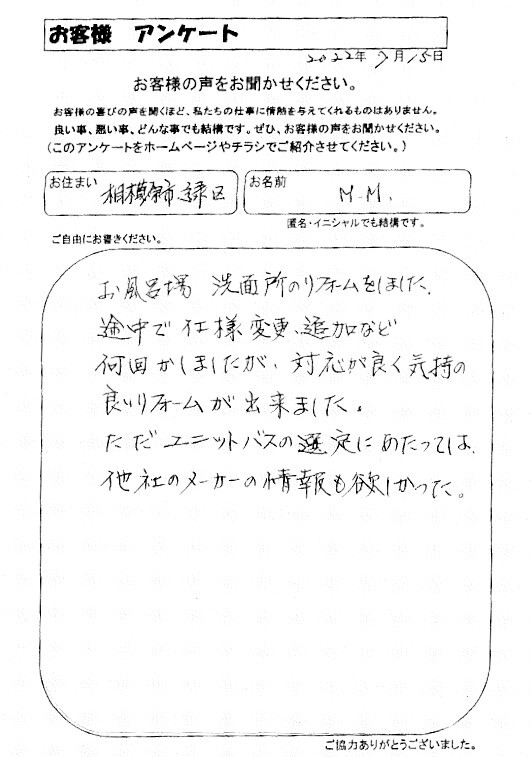 お客様 アンケート
2022年7月15日
お客様の声をお聞かせください。
お客様の喜びの声を聞くほど、私たちの仕事に情熱を与えてくれるものはありません。
良い事、悪い事、どんな事でも結構です。ぜひ、お客様の声をお聞かせください。
(このアンケートをホームページやチラシでご紹介させてください。)
お住まい 相模原市緑区
お名前 M.M.
匿名・イニシャルでも結構です。
ご自由にお書きください。
お風呂場 洗面所のリフォームをしました.
途中で仕様変更、追加など
何回かしましたが、対応が良く気持の
良いリフォームが出来ました。
ただユニットバスの選定にあたっては、
他社のメーカーの情報も欲しかった。
ご協力ありがとうございました。